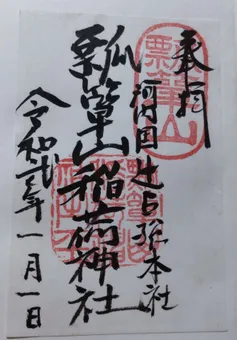 奉拝
河内国辻占総本社
瓢箪山稲荷神社
令和弐年一月一日
瓢箪山